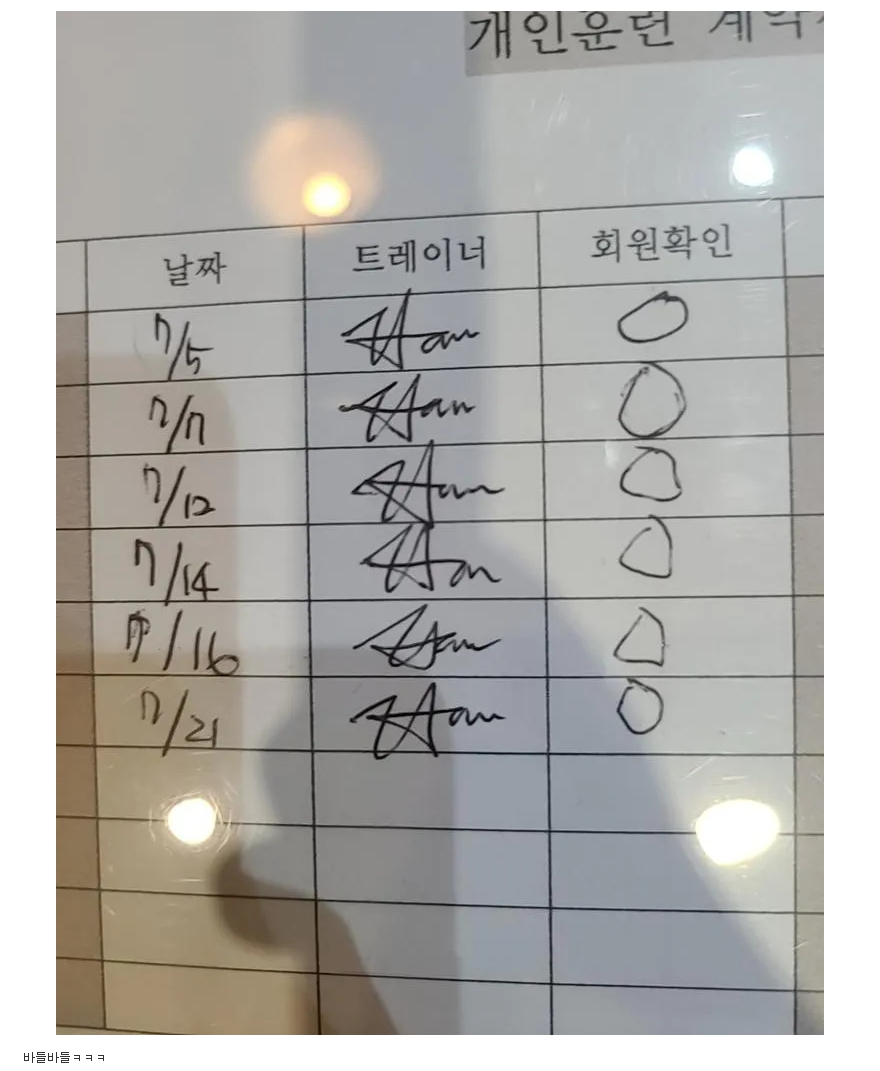 개인훈련 계약
날짜 트레이너 회원확인
7/5 Han O
7/7 Han O
7/12 Han O
7/14 Han O
7/16 Han O
7/21 Han O
바들바들ㅋㅋㅋ